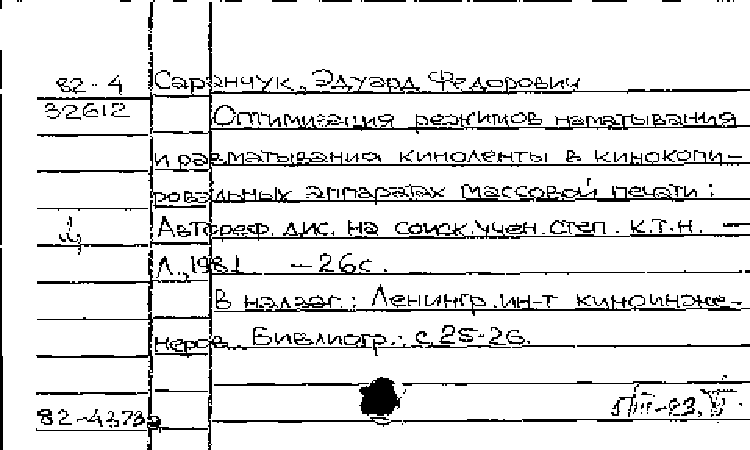 82-4 Саранчук, Эдуард Федорович
32612 Оптимизация режимов наматывания
и разматывания киноленты в кинокопи-
ровальных аппаратах массовой печати:
Автореф. дис. на соиск. учен. степ. к.т.н. —
Л., 1981 — 26с.
В надзаг.: Ленингр. ин-т киноинже-
неров. Библиогр.: с. 25-26.
82-4373а